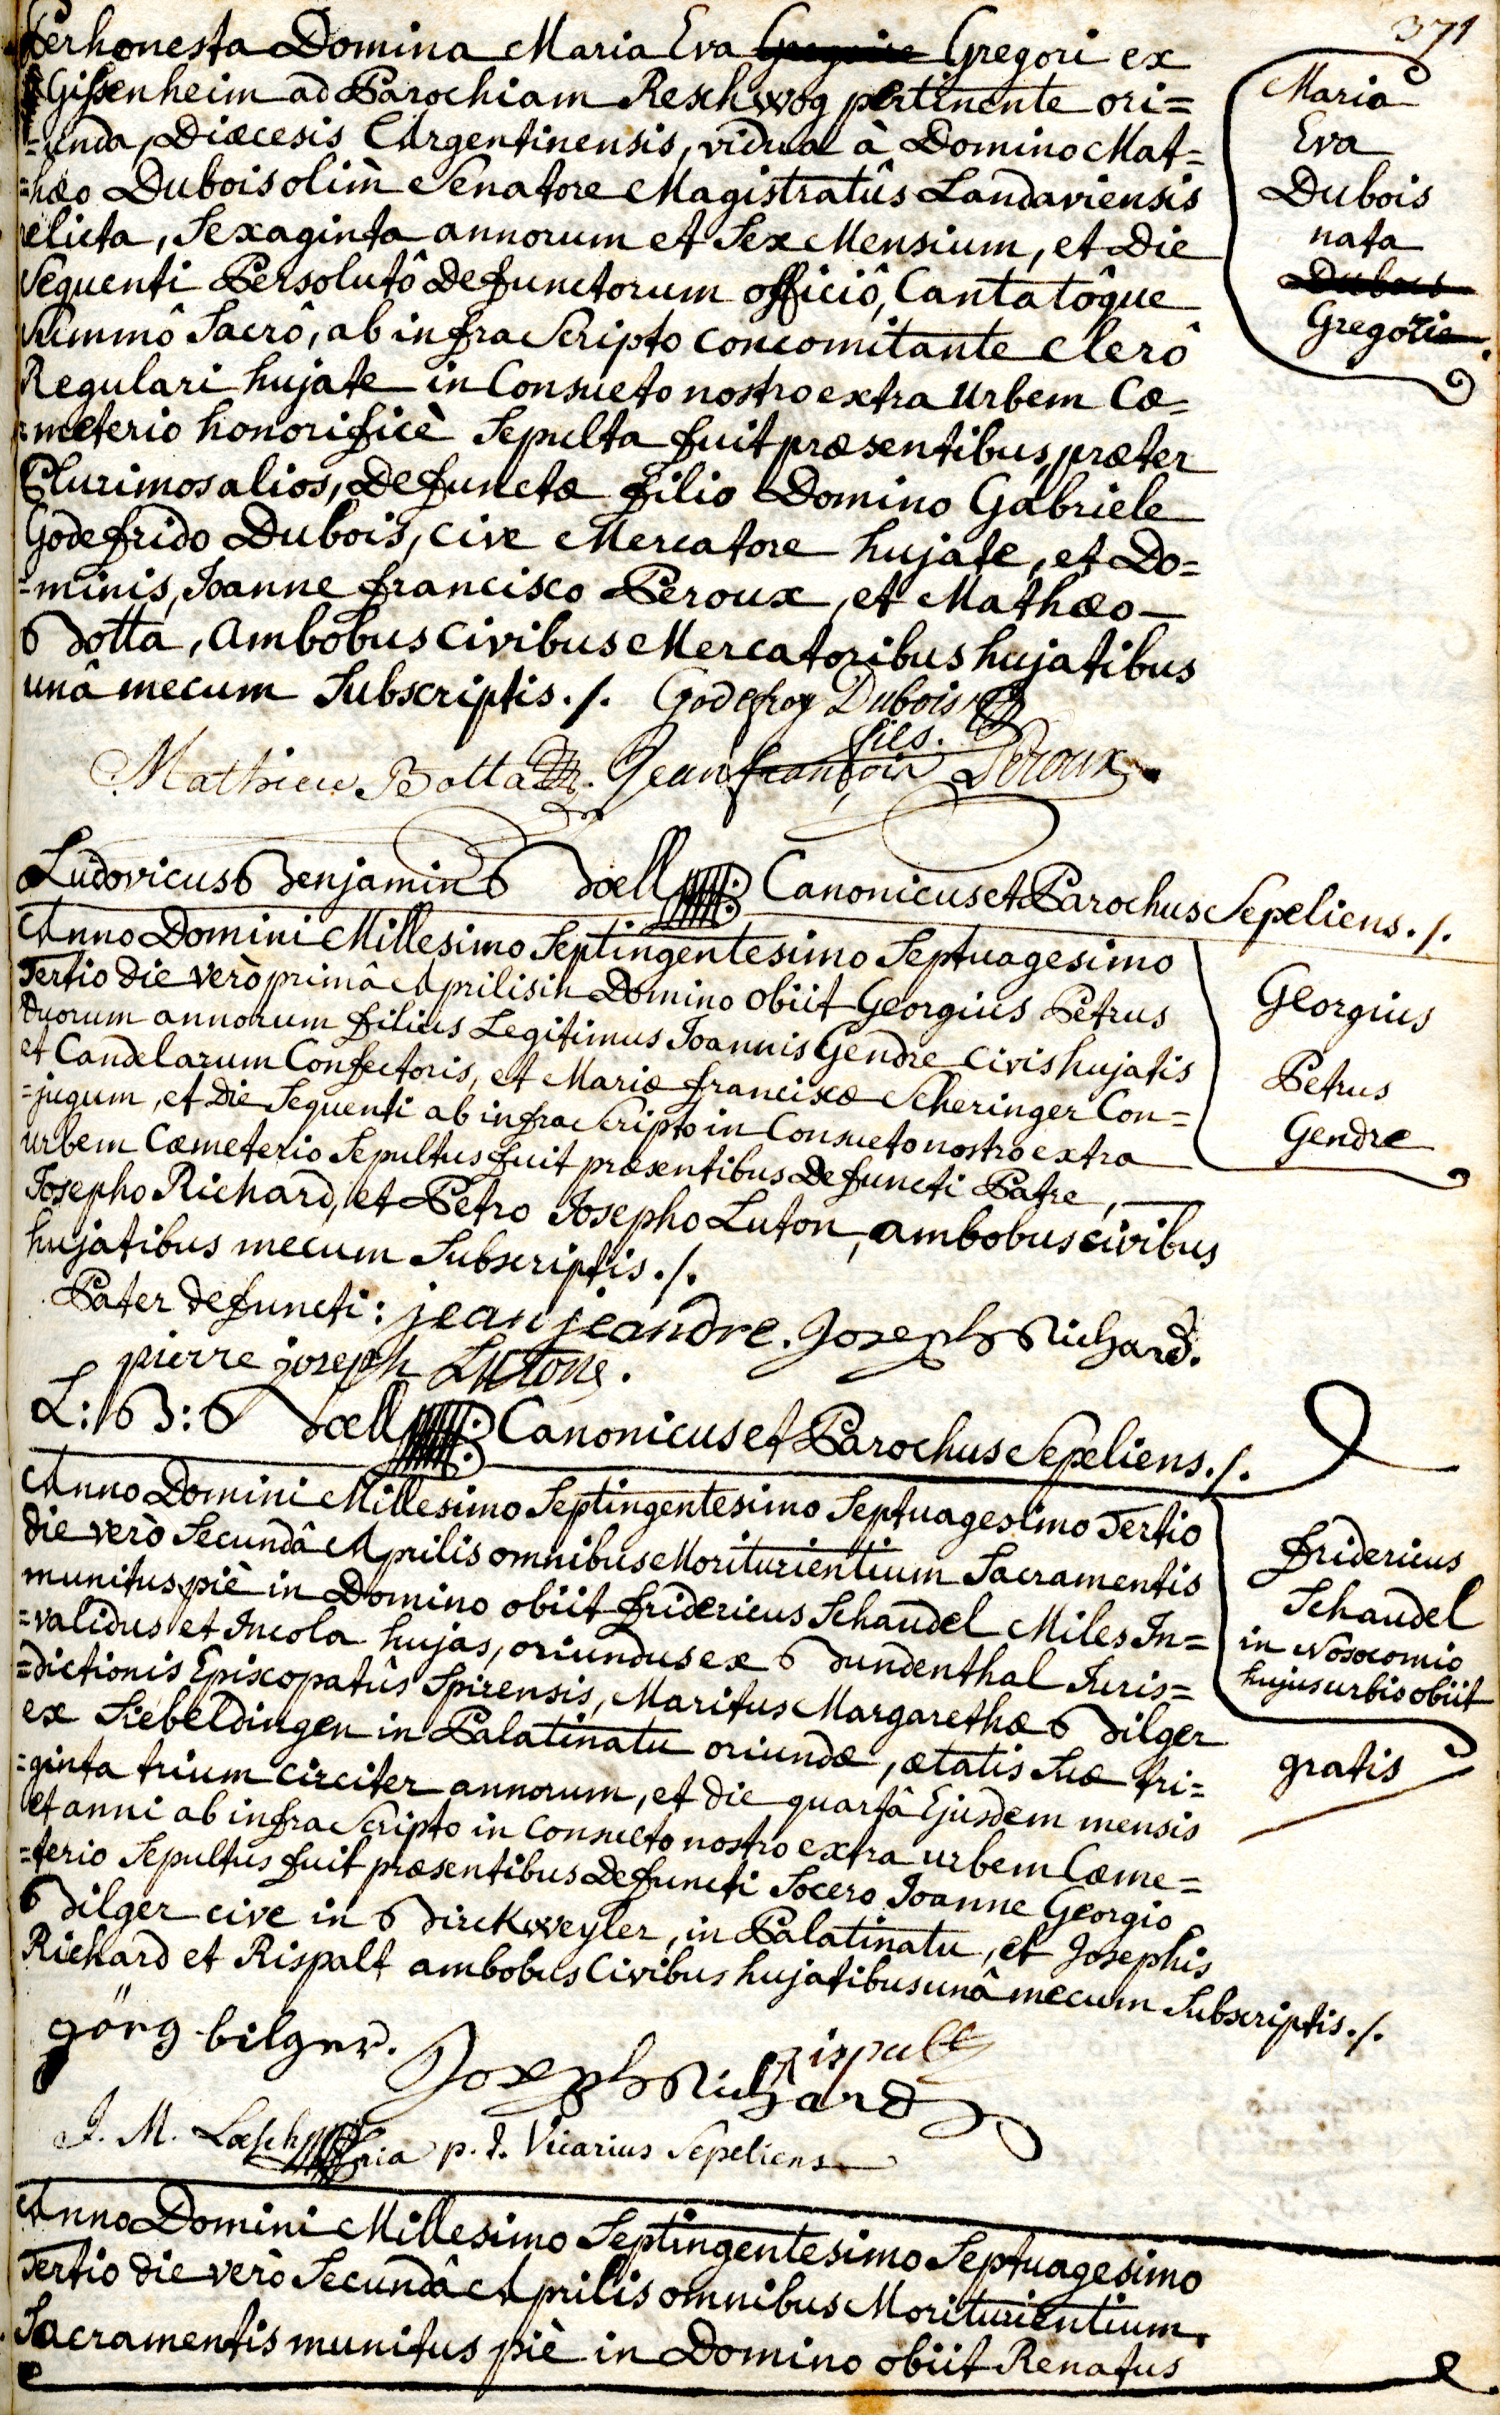 371
Perhonesta Domina Maria Eva Gregoire Gregori ex
Gissenheim ad Parochiam Reschwog pertinente ori=
=unda, Diœcesis Argentinensis, vidua à Domino Mat=
=hæo Dubois olim Senatore Magistratûs Landaviensis
relicta, Sexaginta annorum et Sex Mensium, et Die
Sequenti Persolutô Defunctorum officiô, Cantatôque
Summô Sacrô, ab infra Scripto concomitante Clerô
Regulari hujate in Consueto nostro extra Urbem Cœ=
=meterio honorificè Sepulta fuit præsentibus, præter
Plurimos alios, Defunctæ filio Domino Gabriele
Godefrido Dubois, Cive Mercatore hujate, et Do=
=minis, Joanne francisco Peroux, et Mathæo
Botta, Ambobus Civibus Mercatoribus hujatibus
unâ mecum Subscriptis ./. Godefroy Dubois
fils.
Mathieu Botta Jean françois Peroux
Ludovicus Benjamin Boell Canonicus et Parochus Sepeliens ./.
Maria
Eva
Dubois
nata
Dubois
Gregorie
Anno Domini Millesimo Septingentesimo Septuagesimo
Tertio die verò primâ Aprilis in Domino obiit Georgius Petrus
Duorum annorum filius Legitimus Joannis Gendre Civis hujatis
et Candelarum Confectoris, et Mariæ franciscæ Scheringer Con=
=jugum, et Die Sequenti ab infra Scripto in Consueto nostro extra
urbem Cœmeterio Sepultus fuit præsentibus Defuncti Patre,
Josepho Richard, et Petro Josepho Luton, ambobus civibus
hujatibus mecum Subscriptis ./.
Pater defuncti: jean jeandre. Joseph Richard.
pierre joseph Lutone.
L: B: Boell Canonicus et Parochus Sepeliens ./.
Georgius
Petrus
Gendre
Anno Domini Millesimo Septingentesimo Septuagesimo Tertio
die verò Secundâ Aprilis omnibus Moriturientium Sacramentis
munitus piè in Domino obiit fridericus Schaudel Miles In=
=validus et Incola hujas, oriundus ex Bundenthal Juris=
=dictionis Episcopatûs Spirensis, Maritus Margarethæ Bilger
ex Siebeldingen in Palatinatu oriundæ, ætatis Suæ tri=
=ginta trium circiter annorum, et die quartâ Ejusdem mensis
et anni ab infra Scripto in Consueto nostro extra urbem Cœme=
=terio Sepultus fuit præsentibus Defuncti Socero Joanne Georgio
Bilger cive in Birckweyler, in Palatinatu, et Josephis
Richard et Rispalt ambobus Civibus hujatibus unâ mecum Subscriptis ./.
görg bilger. Joseph Richard Rispalt
J. M. Loesch p. t. Vicarius Sepeliens
fridericus
Schaudel
in Nosocomio
hujus urbis obiit
gratis
Anno Domini Millesimo Septingentesimo Septuagesimo
Tertio die verò Secundâ Aprilis omnibus Moriturientium
Sacramentis munitus piè in Domino obiit Renatus